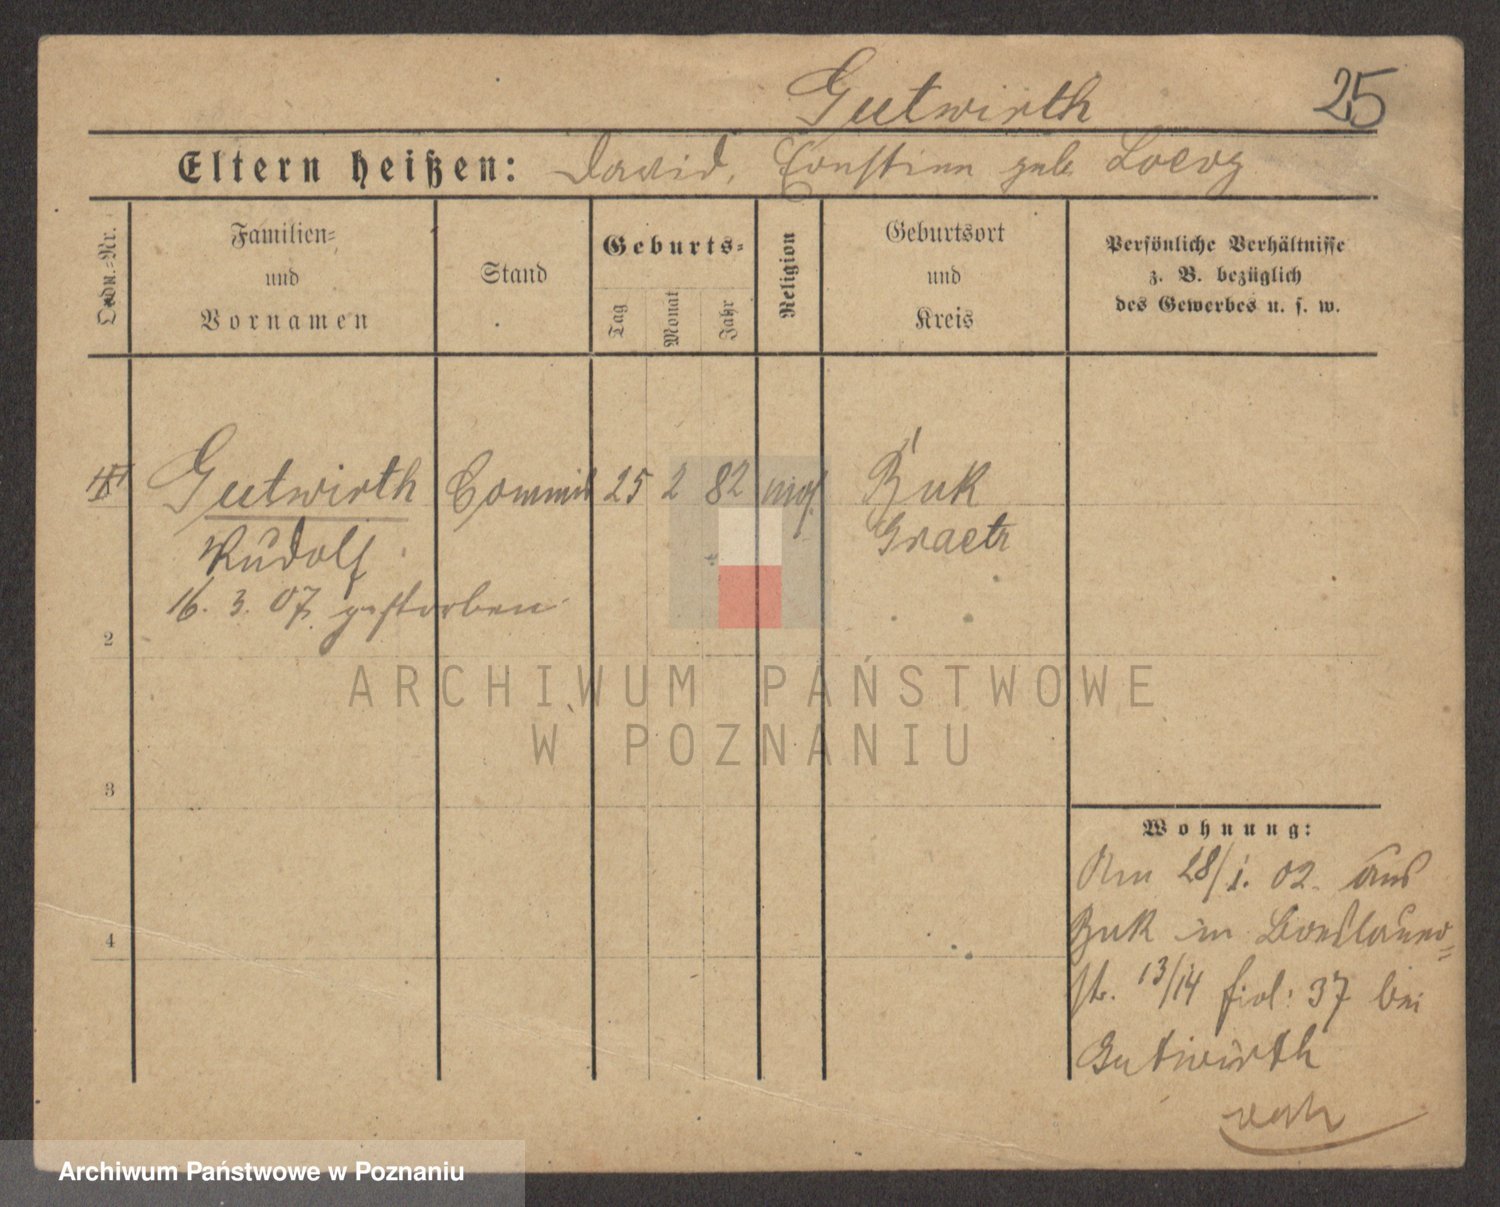 Gutwirth 25
Eltern heißen: David, Ernstine geb. Loevy
Ordn.-Nr.
Familien-
und
Vornamen
Stand
Geburts-
Tag
Monat
Jahr
Religion
Geburtsort
und
Kreis
Persönliche Verhältnisse
z. B. bezüglich
des Gewerbes u. s. w.
Gutwirth Commis 25 2 82 mos. Buk
Rudolf Graetz
16. 3. 07. gestorben
2
3
4
Wohnung:
Am 28/1. 02. aus
Buk in Breslauer-
str. 13/14 fiol: 37 bei
Gutwirth
ARCHIWUM PAŃSTWOWE
W POZNANIU
Archiwum Państwowe w Poznaniu